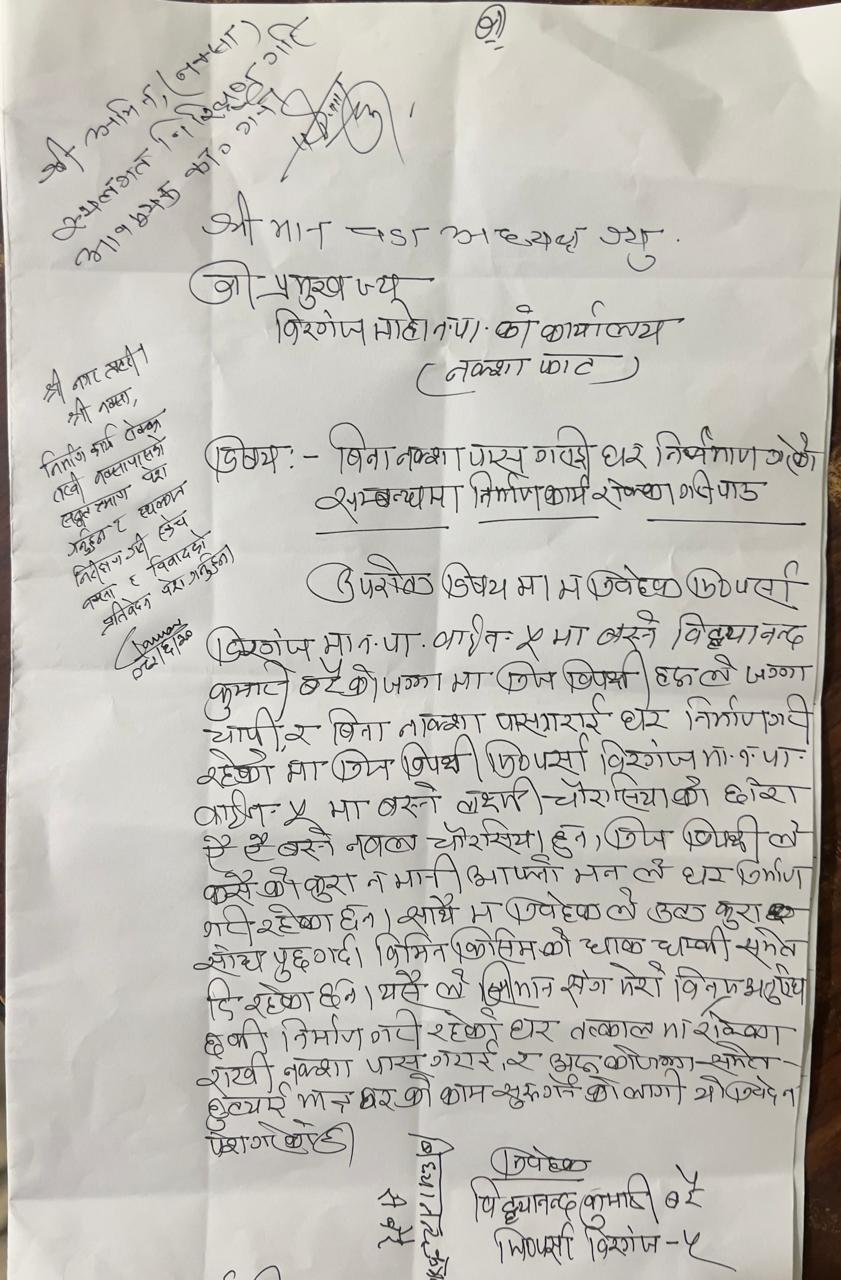 श्री
श्री अमिन, (नक्सा)
स्थलगत निरिक्षण गरि
आवश्यक का० गर्न
श्री मान वडा अध्यक्ष ज्यु.
श्री प्रमुख ज्यू
विरगंज माहा न.पा. को कार्यालय
(नक्शा फाट)
श्री नगर प्रहरी।
श्री नक्सा,
निर्माण कार्य रोक्का
राखी नक्सापासको
सक्कल प्रमाण पेश
गर्नुहुन र स्थलगत
निरिक्षण गरी
नक्सा र विवादको
प्रतिवेदन पेश गर्नुहुन।
विषय :- बिना नक्शा पास गराई घर निर्माण गरेको
सम्बन्धमा निर्माण कार्य रोक्का गरी पाउ
उपरोक्त विषय मा म निवेदक जि.पर्सा
विरगंज मा.न.पा. वार्ड नं- ५ मा बस्ने विद्ध्यानन्द
कुमारी बरै को जग्गा मा निज विपक्षी हरु ले जग्गा
चापी, र बिना नाक्शा पास गराई घर निर्माण गरी
रहेको मा निज विपक्षी जि.पर्सा विरगंज मा.न.पा.
वार्ड नं- ५ मा बस्ने लक्ष्मी चौरासिया को छोरा
ऐ ऐ बस्ने नवल चौरसिया हुन, निज विपक्षी ले
कसै को कुरा न मानी आफ्नो मन ले घर निर्माण
गरी रहेका छन। साथै म निवेदक ले उक्त कुरा
सोध पुछ गर्दा विभिन किसिम को धाक धम्की समेत
दि रहेका छन। यसै ले श्रीमान संग मेरो विनम्र अनुरोध
छ की निर्माण गरी रहेको घर तत्काल मा रोक्का
राखी नक्शा पास गराई, र अरु को जग्गा समेत
छुट्याई मात्र घर को काम सुरु गर्न को लागी यो निवेदन
पेश गरेको छु।
निवेदक
विद्ध्यानन्द कुमारी बरै
जि.पर्सा विरगंज - ५